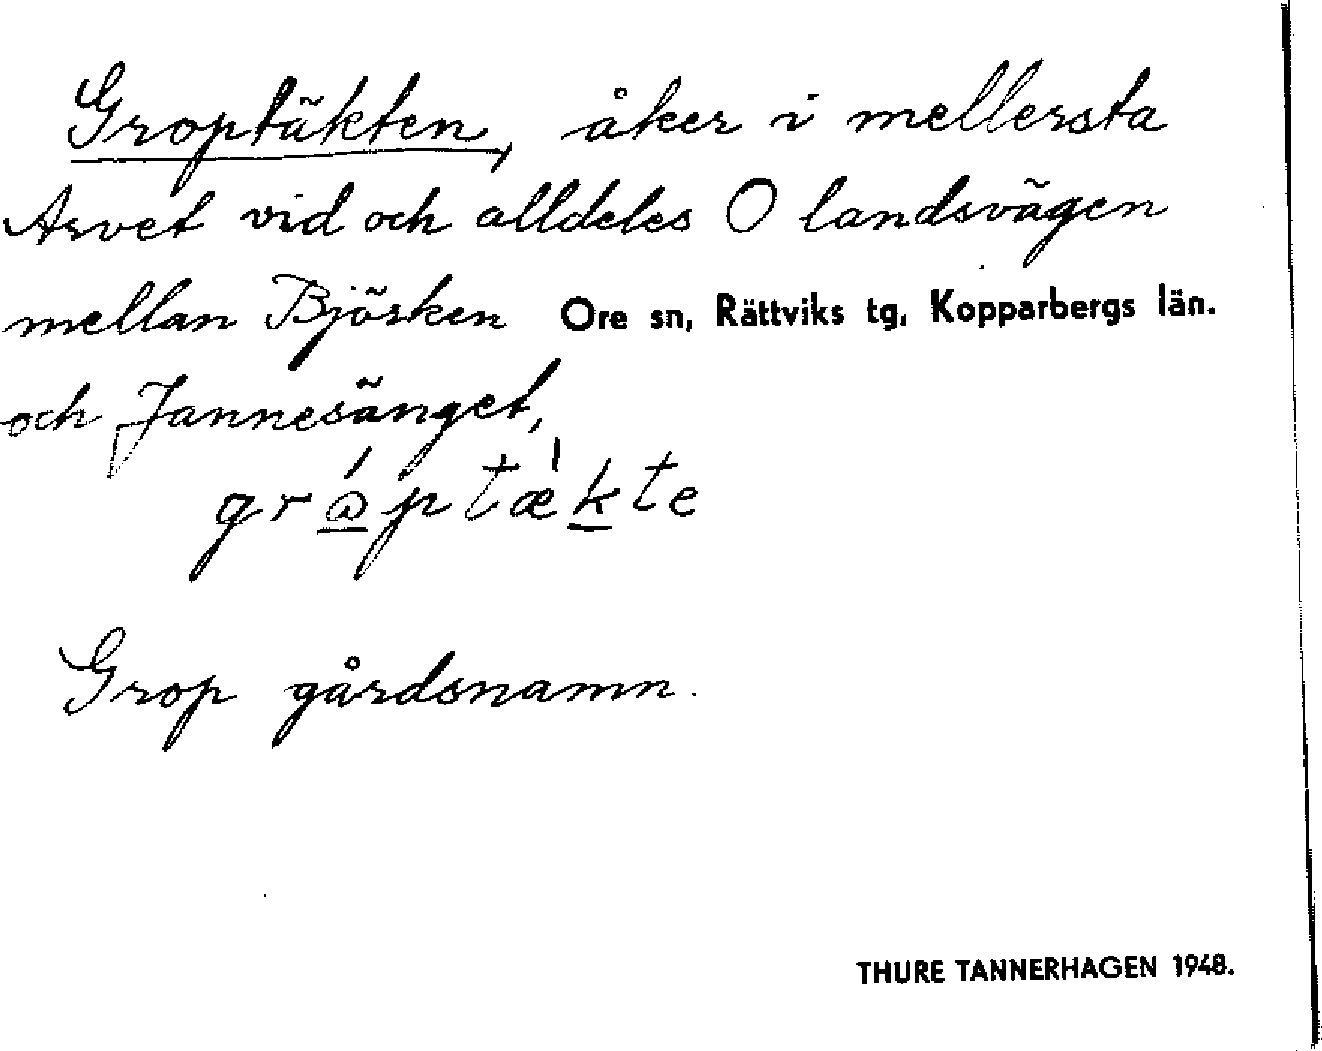 Groptäkten, åker i mellersta
Arvet vid och alldeles O landsvägen
mellan Björken Ore sn, Rättviks tg, Kopparbergs län.
och Jannesänget,
Grop gårdsnamn.
THURE TANNERHAGEN 1948.